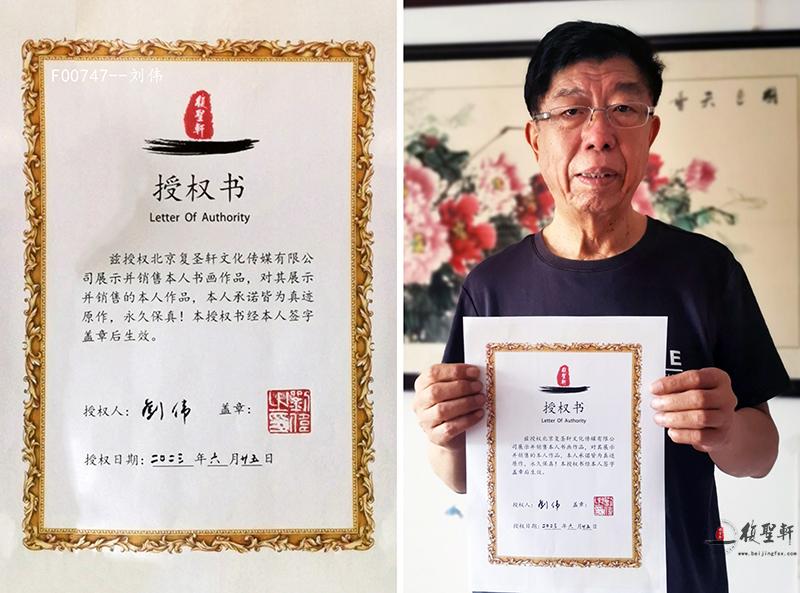 F00747--刘伟
復聖軒
授权书
Letter Of Authority
兹授权北京复圣轩文化传媒有限公
司展示并销售本人书画作品，对其展示
并销售的本人作品，本人承诺皆为真迹
原作，永久保真！本授权书经本人签字
盖章后生效。
授权人：劉伟 盖章：
授权日期：二〇二三 年 六 月 廿五 日
復聖軒
授权书
Letter Of Authority
兹授权北京复圣轩文化传媒有限公
司展示并销售本人书画作品，对其展示
并销售的本人作品，本人承诺皆为真迹
原作，永久保真！本授权书经本人签字
盖章后生效。
授权人：劉伟 盖章：
授权日期：二〇二三 年 六 月 廿五 日
E
復聖軒
www.beijingfsx.com